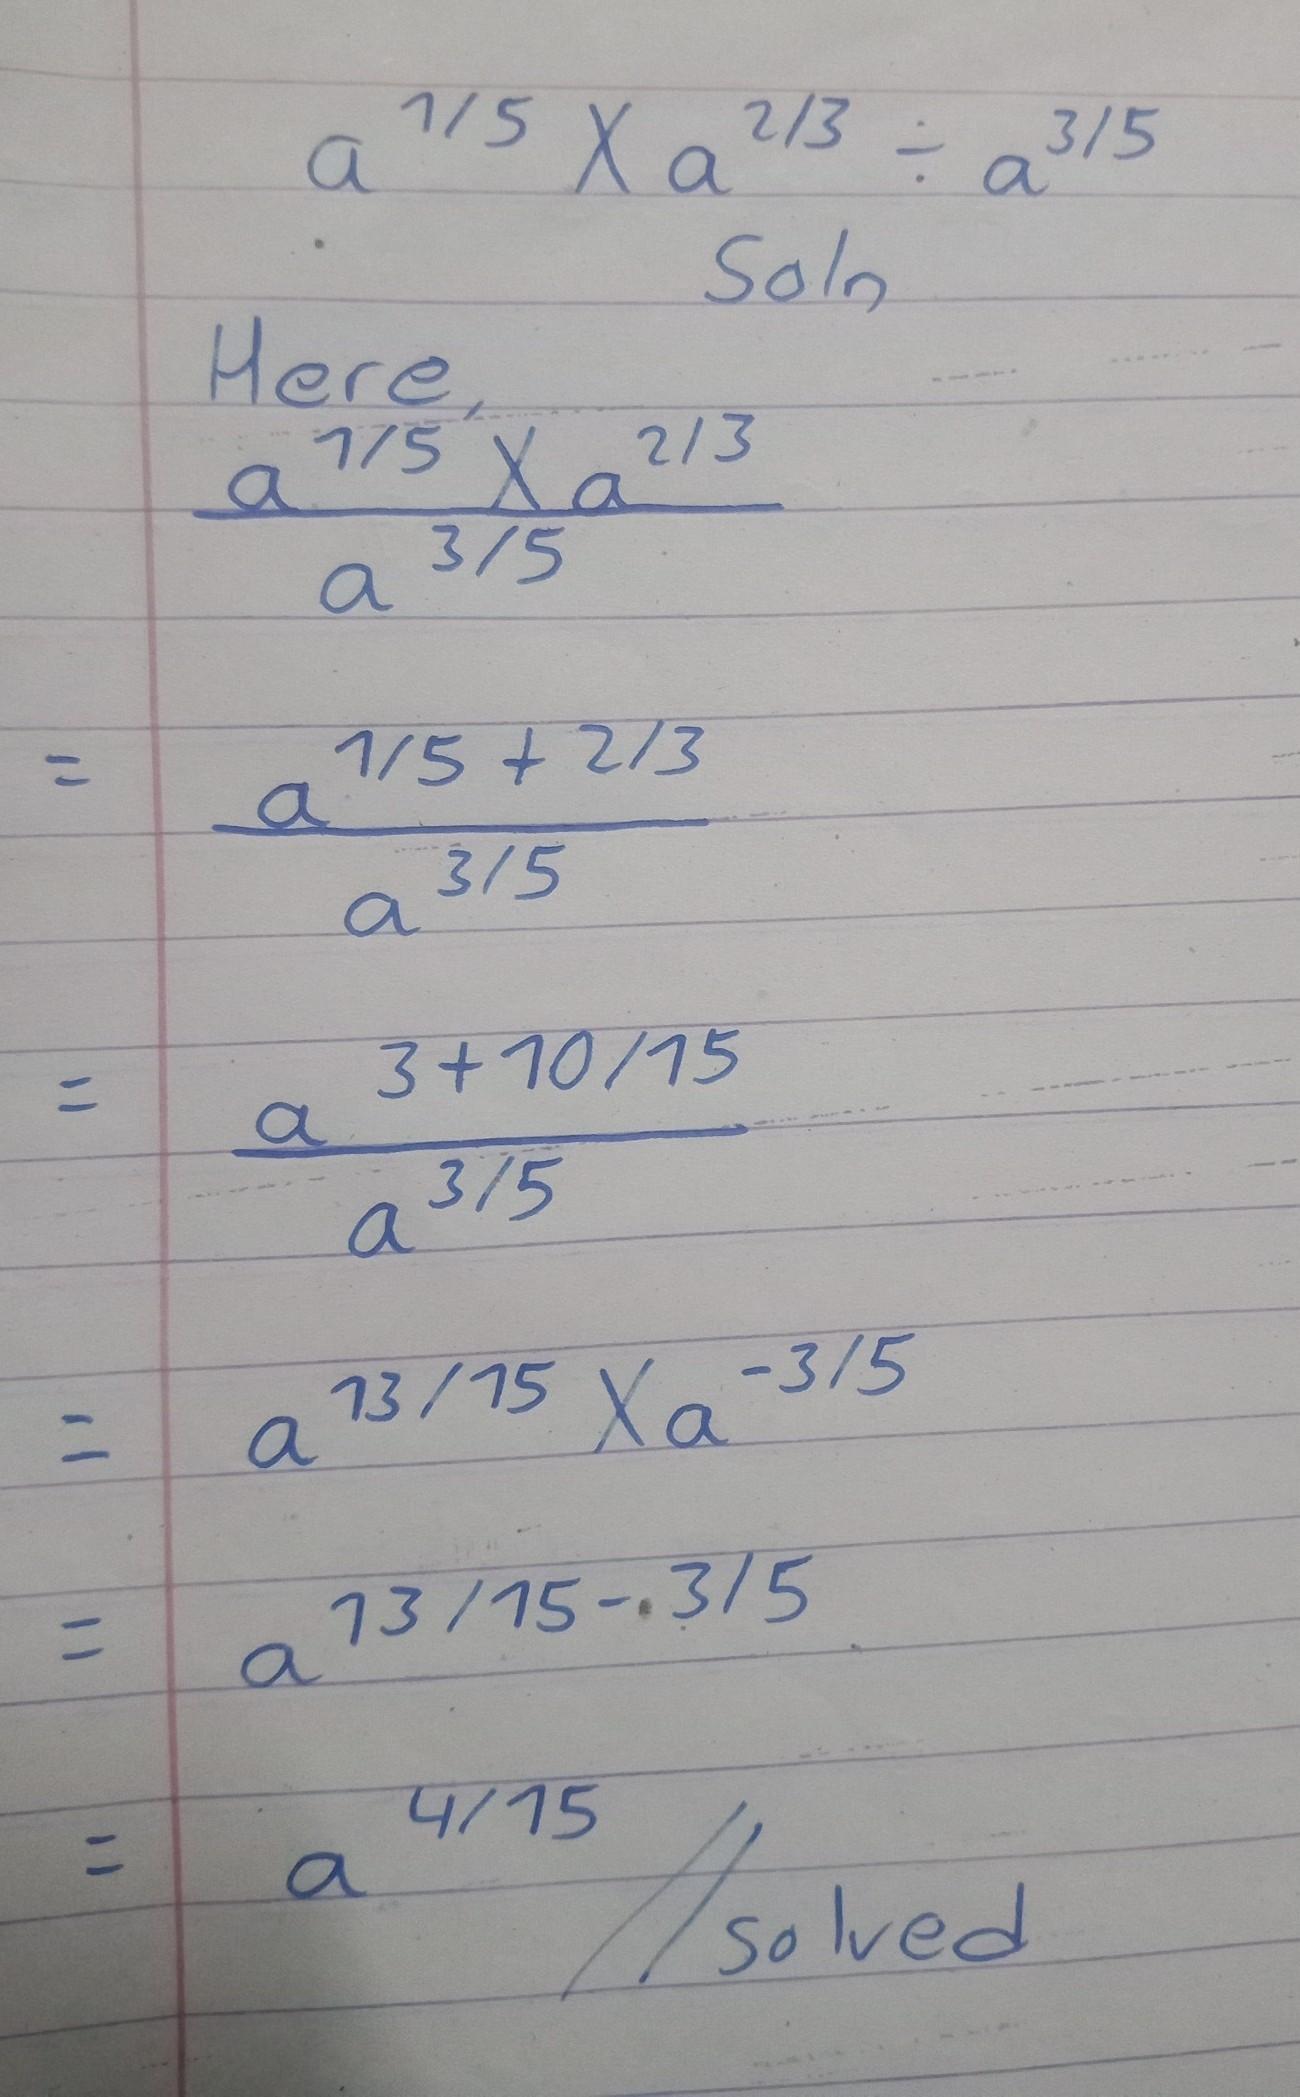 a^1/5 X a^2/3 ÷ a^3/5
Soln
Here,
a^1/5 X a^2/3
a^3/5
= a^1/5 + 2/3
a^3/5
= a^3+10/15
a^3/5
= a^13/15 X a^-3/5
= a^13/15 - 3/5
= a^4/15 // solved